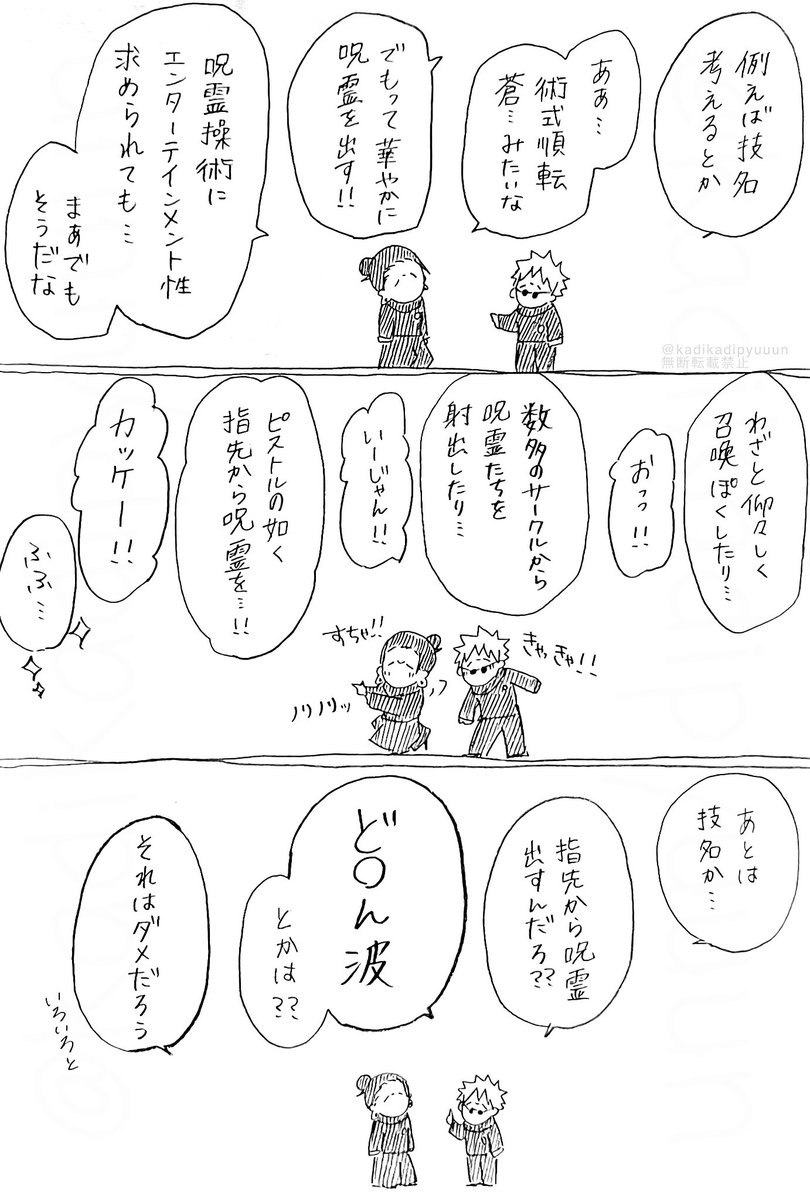 例えば技名
考えるとか
ああ…
術式順転
蒼…みたいな
でもって華やかに
呪霊を出す!!
呪霊操術に
エンターテインメント性
求められても…
まぁでも
そうだな
@kadikadipyuuun
無断転載禁止
わざと仰々しく
召喚ぽくしたり…
おっっ!!
数多のサークルから
呪霊たちを
射出したり…
いーじゃん!!
ピストルの如く
指先から呪霊を…!!
カッケー!!
ふふ…
きゃっきゃ!!
すちゃ!!
ノリノリッ
あとは
技名か…
指先から呪霊
出すんだろ??
ど〇ん波
とかは??
それはダメだろう
いろいろと